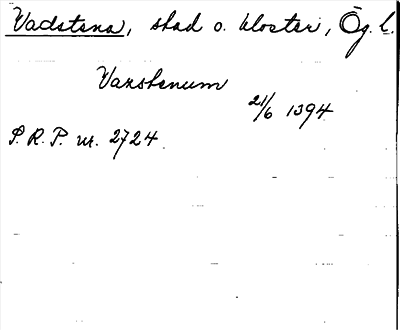 Vadstena, stad o. kloster, Ög. l.
Vaxstenum
21/6 1394
S.R.P. nr. 2724